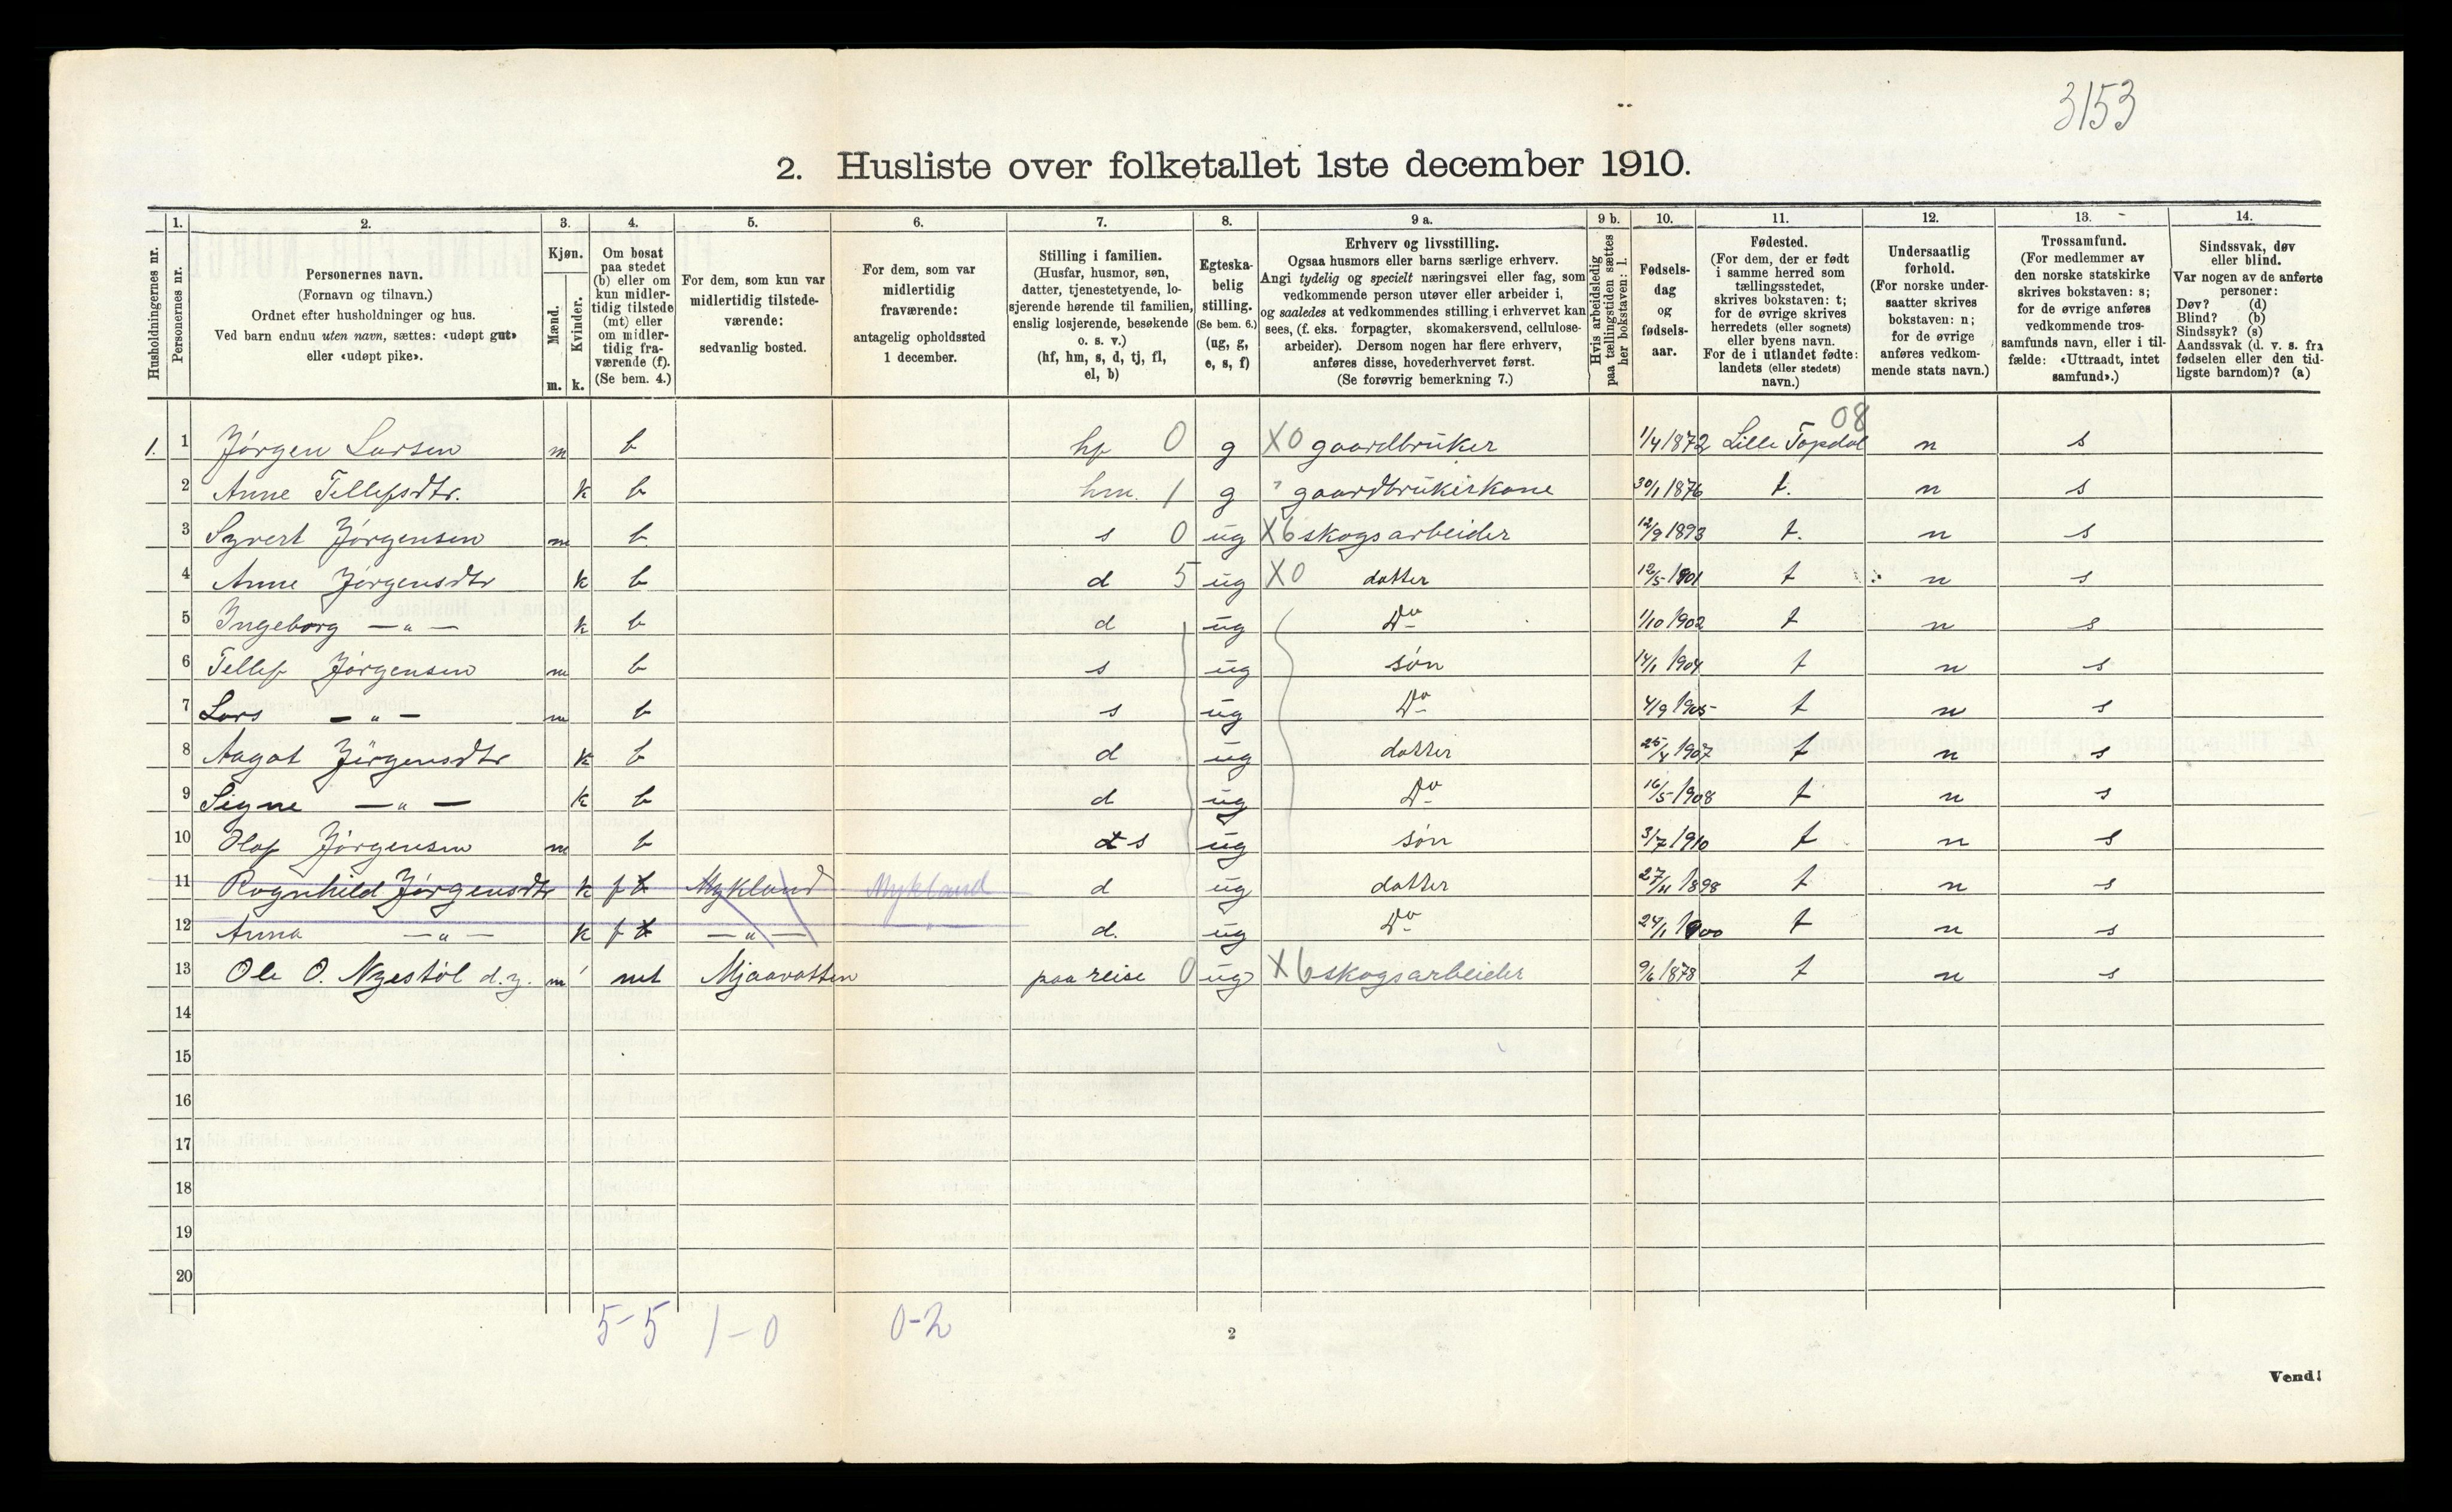 3153
2. Husliste over folketallet 1ste december 1910.
Husholdningernes nr.
1.
Personernes nr.
2.
Personernes navn.
(Fornavn og tilnavn.)
Ordnet efter husholdninger og hus.
Ved barn endnu uten navn, sættes: «udøpt gut»
eller «udøpt pike».
3.
Kjøn.
Mænd.
Kvinder.
m. k.
4.
Om bosat
paa stedet
(b) eller om
kun midler-
tidig tilstede
(mt) eller
om midler-
tidig fra-
værende (f).
(Se bem. 4.)
5.
For dem, som kun var
midlertidig tilstede-
værende:
sedvanlig bosted.
6.
For dem, som var
midlertidig
fraværende:
antagelig opholdssted
1 december.
7.
Stilling i familien.
(Husfar, husmor, søn,
datter, tjenestetyende, lo-
sjerende hørende til familien,
enslig losjerende, besøkende
o. s. v.)
(hf, hm, s, d, tj, fl,
el, b)
8.
Egteska-
belig
stilling.
(Se bem. 6.)
(ug, g,
e, s, f)
9 a.
Erhverv og livsstilling.
Ogsaa husmors eller barns særlige erhverv.
Angi tydelig og specielt næringsvei eller fag, som
vedkommende person utøver eller arbeider i,
og saaledes at vedkommendes stilling i erhvervet kan
sees, (f. eks. forpagter, skomakersvend, cellulose-
arbeider). Dersom nogen har flere erhverv,
anføres disse, hovederhvervet først.
(Se forøvrig bemerkning 7.)
9 b.
Hvis arbeidsledig
paa tællingstiden sættes
her bokstaven: l.
10.
Fødsels-
dag
og
fødsels-
aar.
11.
Fødested.
(For dem, der er født
i samme herred som
tællingsstedet,
skrives bokstaven: t;
for de øvrige skrives
herredets (eller sognets)
eller byens navn.
For de i utlandet fødte:
landets (eller stedets)
navn.)
12.
Undersaatlig
forhold.
(For norske under-
saatter skrives
bokstaven: n;
for de øvrige
anføres vedkom-
mende stats navn.)
13.
Trossamfund.
(For medlemmer av
den norske statskirke
skrives bokstaven: s;
for de øvrige anføres
vedkommende tros-
samfunds navn, eller i til-
fælde: «Uttraadt, intet
samfund».)
14.
Sindssvak, døv
eller blind.
Var nogen av de anførte
personer:
Døv? (d)
Blind? (b)
Sindssyk? (s)
Aandssvak (d. v. s. fra
fødselen eller den tid-
ligste barndom)? (a)
08
1. 1 Jørgen Larsen m b hf 0 g X0 gaardbruker 1/4 1872 Lille Topdal n s
2 Anne Tellefsdtr. k b hm. 1 g gaardbrukerkone 30/1 1876 t. n s
3 Syvert Jørgensen m b s 0 ug X6 skogsarbeider 12/9 1893 t. n s
4 Anne Jørgensdtr k b d 5 ug X0 datter 12/5 1901 t n s
5 Ingeborg — " — k b d ug Do 1/10 1902 t n s
6 Tellef Jørgensen m b s ug søn 14/1 1904 t n s
7 Lars — " — m b s ug Do 4/9 1905 t n s
8 Aagot Jørgensdtr k b d ug datter 25/4 1907 t n s
9 Signe — " — k b d ug Do 16/5 1908 t n s
10 Olaf Jørgensen m b d s ug søn 3/7 1910 t n s
11 Ragnhild Jørgensdtr k f b Mykland Mykland d ug datter 27/11 1898 t n s
12 Anna — " — k f — " — " d. ug Do 24/1 1900 t n s
13 Ole O. Nyestøl d.y. m mt Mjaavatten paa reise 0 ug X6 skogsarbeider 9/6 1878 t n s
14
15
16
17
18
19
20
5-5 1-0 0-2
2
Vend!